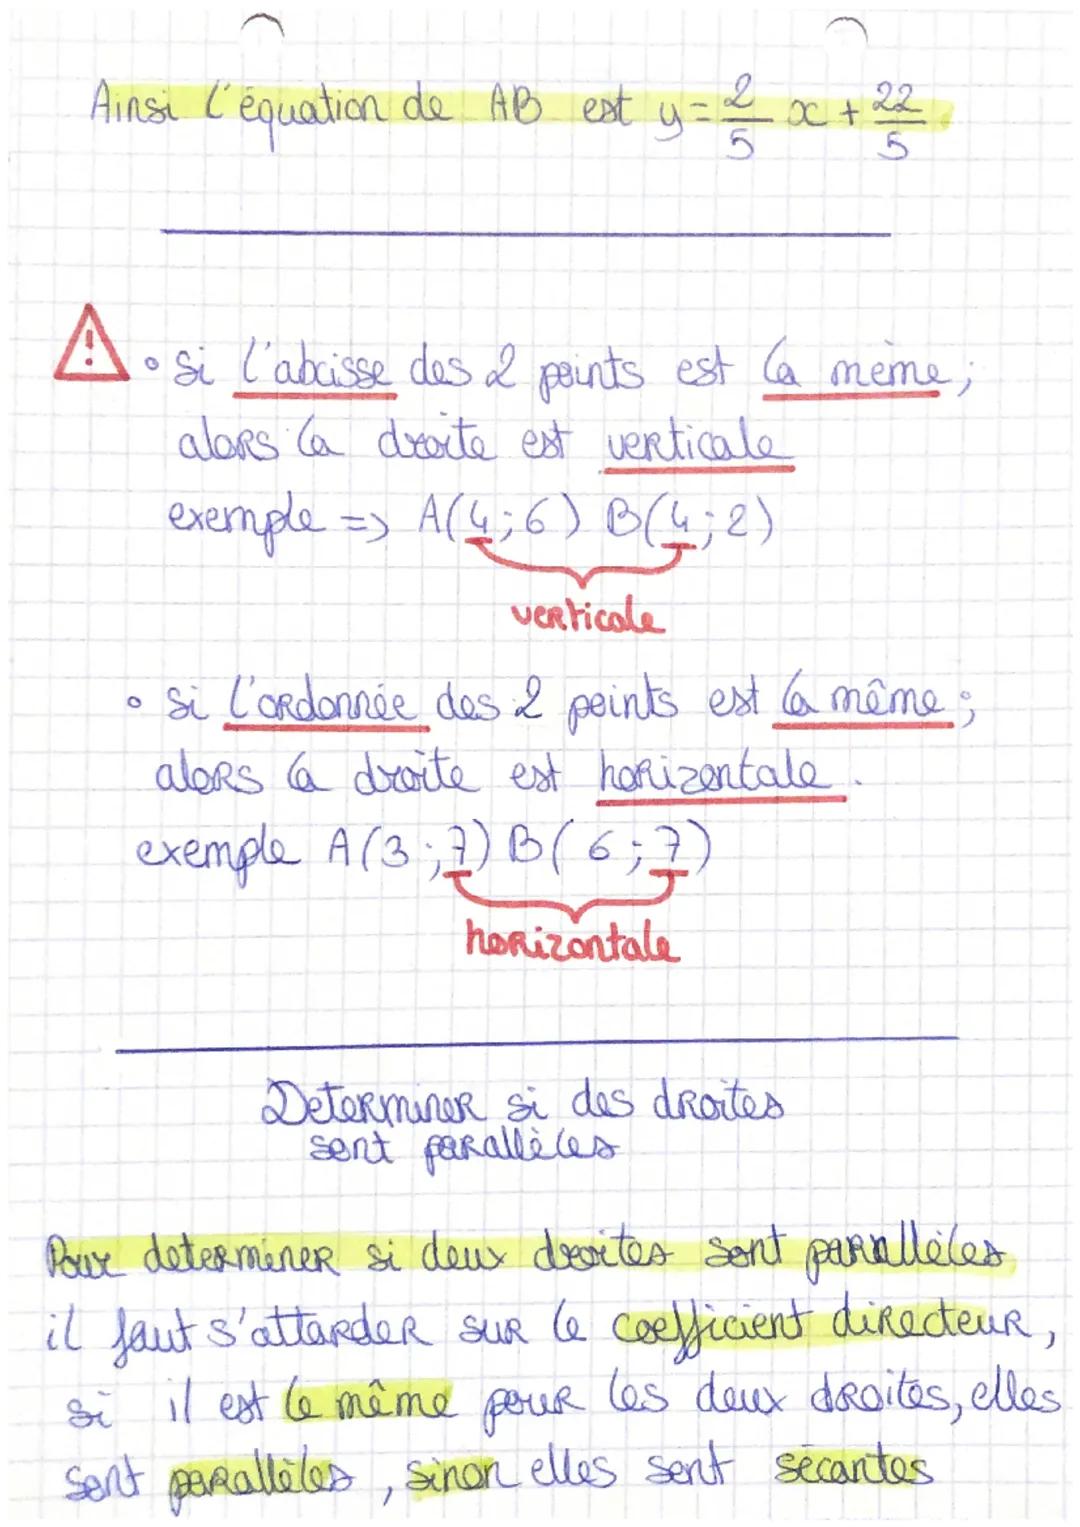 Ainsi l'équation de AB est y = 2/5 x + 22/5
• si l'abcisse des 2 points est la même ;
alors la droite est verticale
exemple => A(4;6) B(4;2)
verticale
• si l'ordonnée des 2 points est la même ;
alors la droite est horizontale.
exemple A(3;7) B(6;7)
horizontale
Determiner si des droites
sont parallèles
Pour determiner si deux droites sont parallèles
il faut s'attarder sur le coefficient directeur,
si il est le même pour les deux droites, elles
sont parallèles, sinon elles sont sécantes